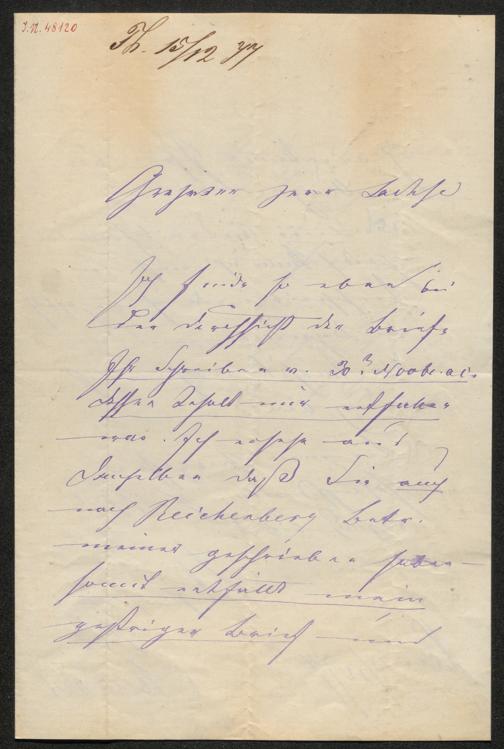 I.N. 48120
Th. 15/12 77
Geehrter Herr
Ich finde so eben bei
der Durchsicht der Briefe
Ihr Schreiben v. 30
dessen Inhalt mir entfallen
war. Ich ersehe aus
demselben daß Sie auch
nach Reichenberg betr.
meiner geschrieben haben
somit entfällt mein
gestriger Brief und